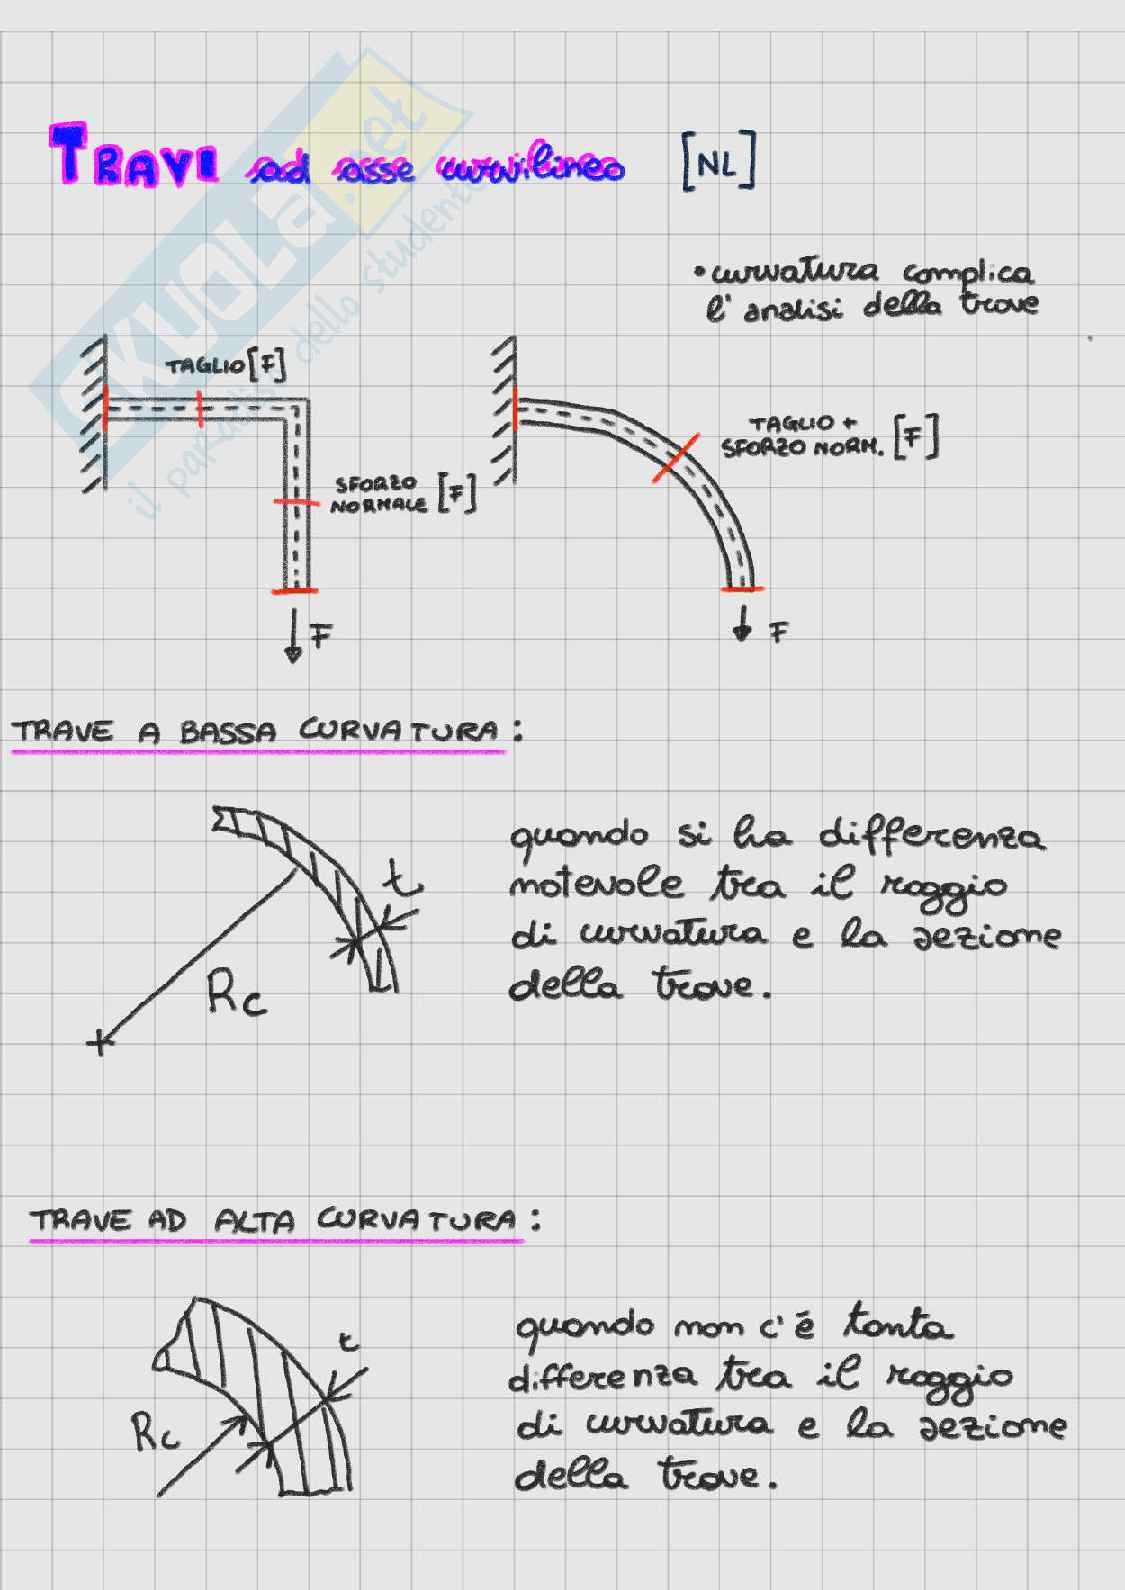 TRAVI ad asse curvilineo [NL]
• curvatura complica
l'analisi della trave
TAGLIO [F]
SFORZO
NORMALE [F]
F
TAGLIO +
SFORZO NORM. [F]
F
TRAVE A BASSA CURVATURA:
t
Rc
quando si ha differenza
notevole tra il raggio
di curvatura e la sezione
della trave.
TRAVE AD ALTA CURVATURA:
t
Rc
quando non c'é tanta
differenza tra il raggio
di curvatura e la sezione
della trave.
SKUOLA.net
il paradiso dello studente